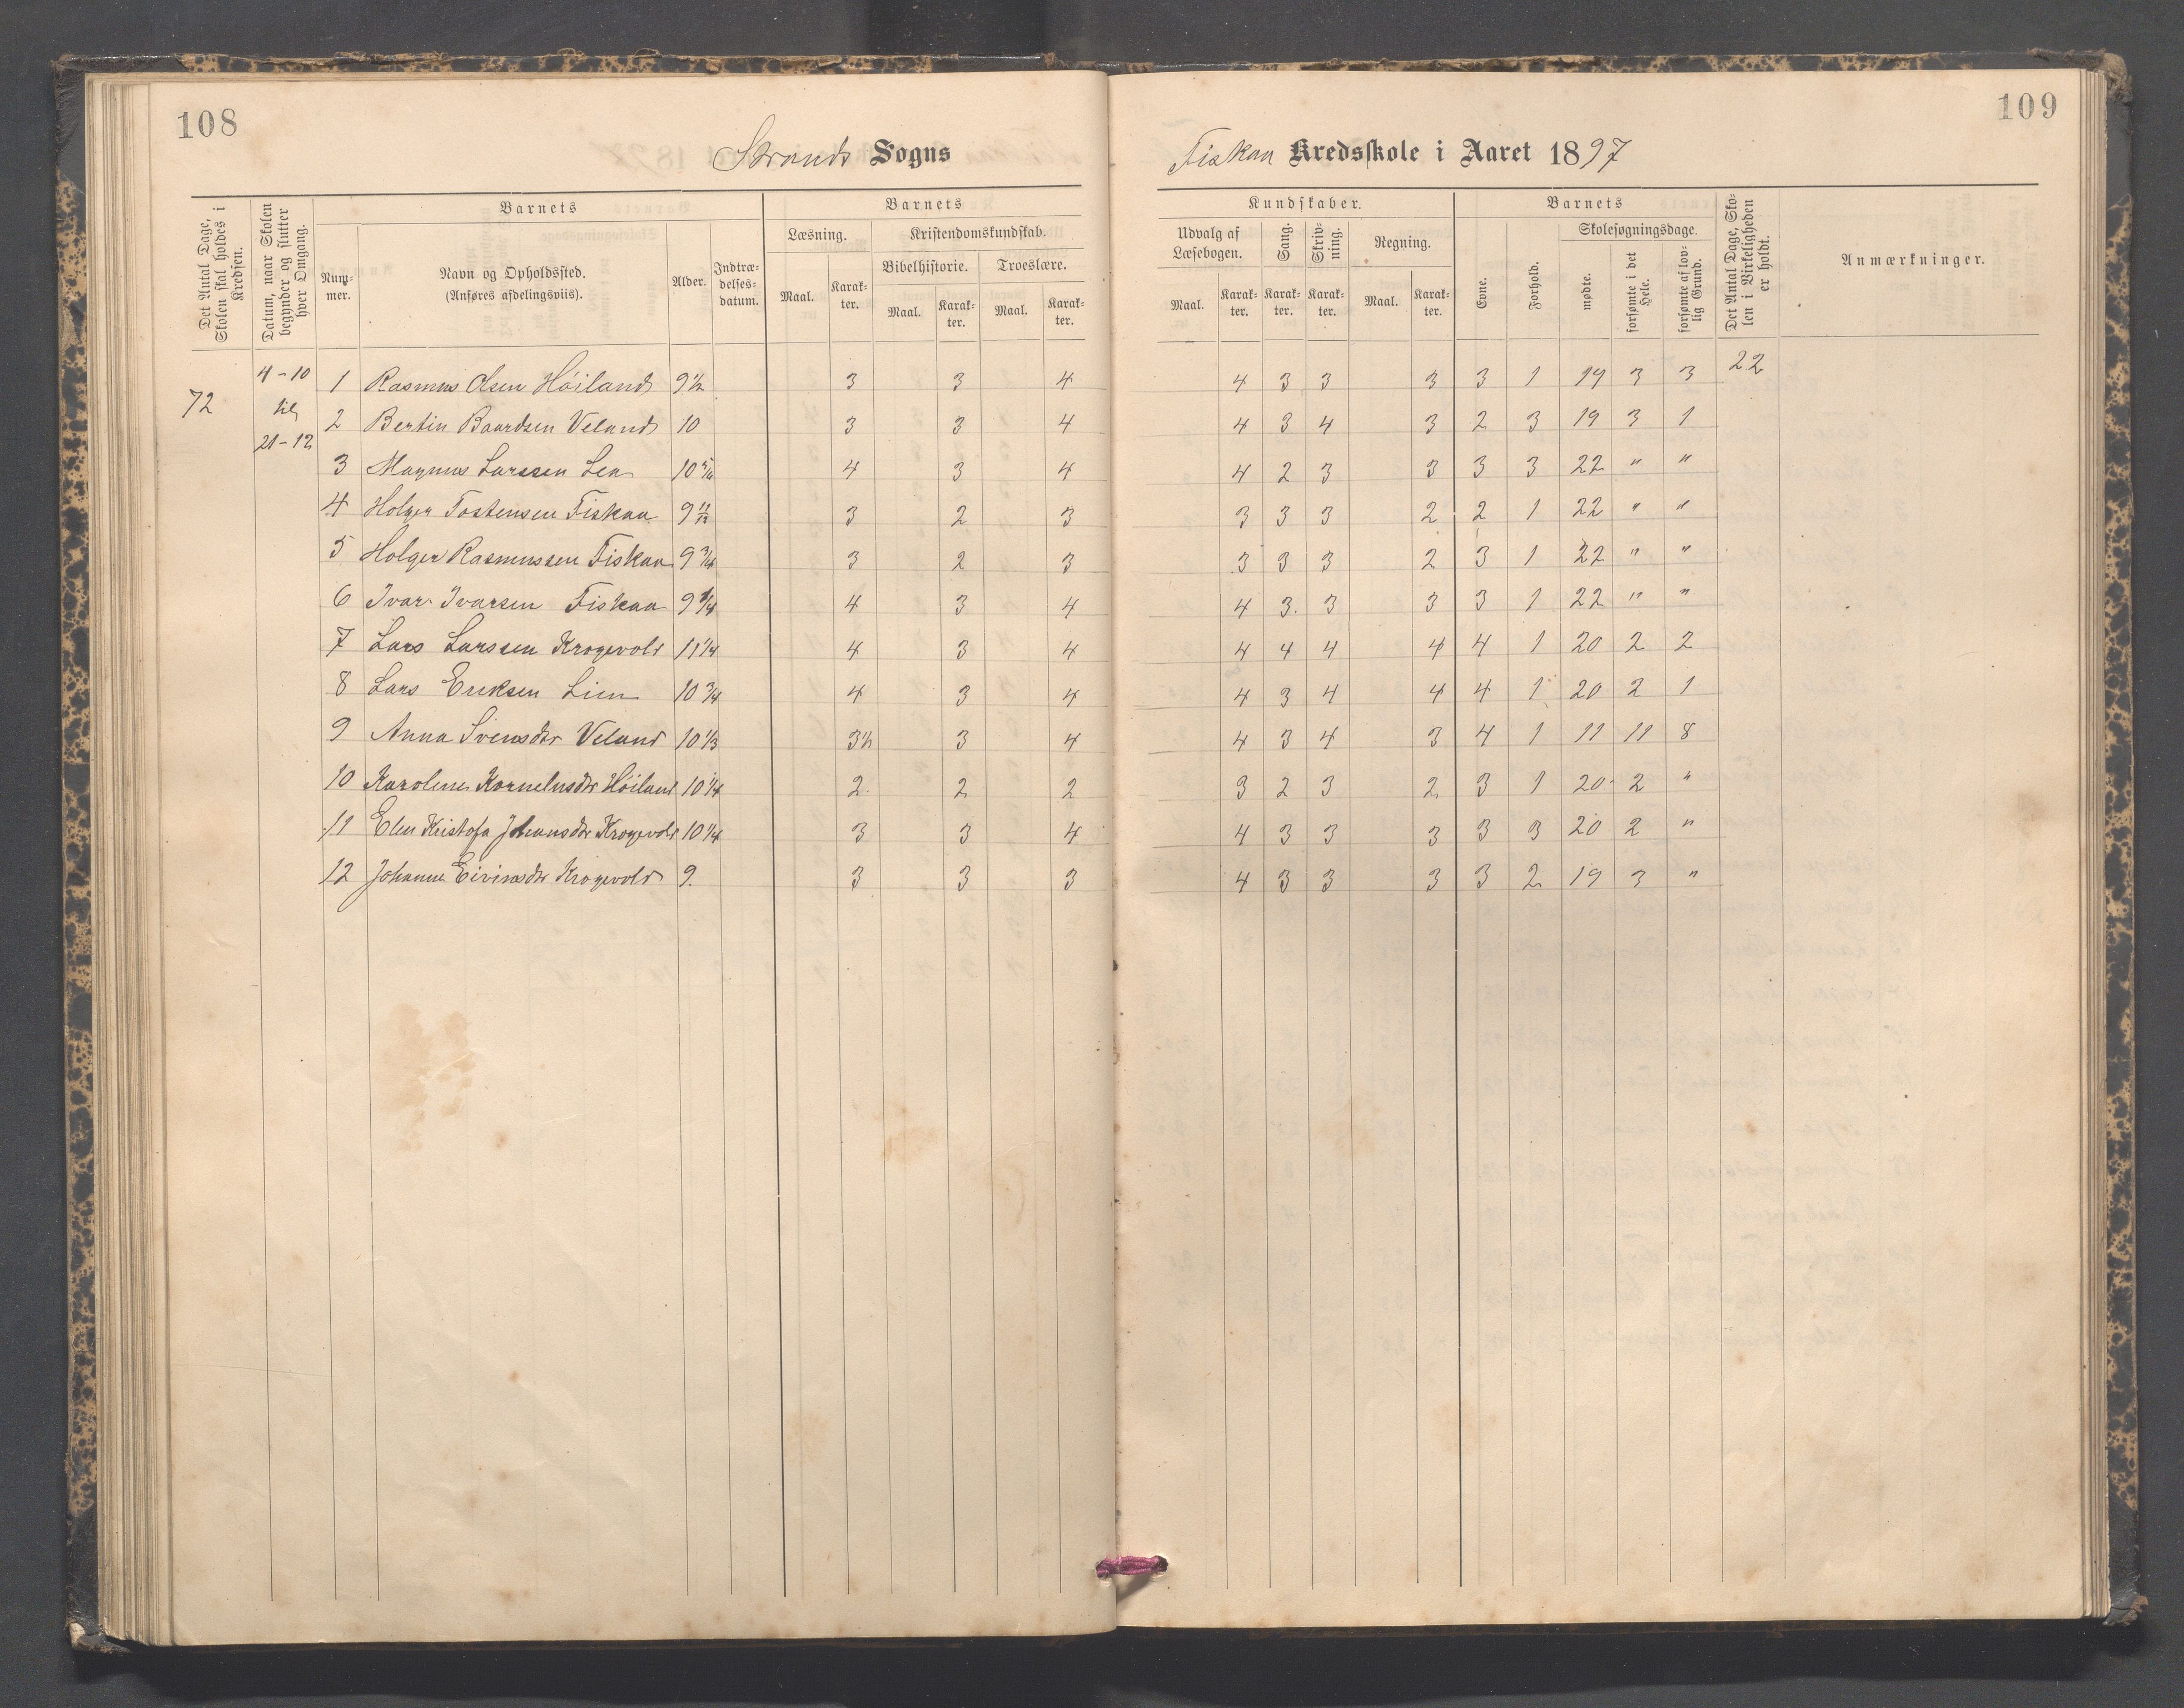 108
109
Strands Sogns
Fiskaa Kredsskole i Aaret 1897
Det Antal Dage, Skolen skal holdes i Kredsen.
Datum, naar Skolen begynder og slutter hver Omgang.
Barnets
Num-mer.
Navn og Opholdssted.
(Anføres afdelingsviis).
Alder.
Indtræ-delses-datum.
Barnets
Læsning.
Kristendomskundskab.
Bibelhistorie.
Troeslære.
Maal.
Karak-ter.
Maal.
Karak-ter.
Maal.
Karak-ter.
Kundskaber.
Udvalg af Læsebogen.
Sang.
Skriv-ning.
Regning.
Maal.
Karak-ter.
Karak-ter.
Karak-ter.
Maal.
Karak-ter.
Barnets
Evne.
Forhold.
Skolesøgningsdage.
mødte.
forsømte i det Hele.
forsømte af lov-lig Grund.
Det Antal Dage, Sko-len i Virkeligheden er holdt.
Anmærkninger.
72
4-10
til
21-12
1 Rasmus Olsen Høiland 9½ 3 3 4 4 3 3 3 3 1 19 3 3 22
2 Bertin Baardsen Veland 10 3 3 4 4 3 4 3 2 3 19 3 1
3 Magnus Larssen Lea 10 4 3 4 4 2 3 3 3 3 22 " "
4 Holger Tostensen Fiskaa 9 11/12 3 2 3 3 3 3 2 2 1 22 " "
5 Holger Rasmussen Fiskaa 9¾ 3 2 3 3 3 3 2 3 1 22 " "
6 Ivar Ivarsen Fiskaa 9¼ 4 3 4 4 3. 3 3 3 1 22 " "
7 Lars Larssen Krogevold 11¼ 4 3 4 4 4 4 4 4 1 20 2 2
8 Lars Eriksen Lien 10¾ 4 3 4 4 3 4 4 4 1 20 2 1
9 Anna Svensdtr Veland 10⅓ 3½ 3 4 4 3 4 3 4 1 11 11 8
10 Karoline Kornelusdtr Høiland 10¼ 2. 2 2 3 2 3 2 3 1 20 2 "
11 Elen Kristofa Johansdtr Krogevold 10¼ 3 3 4 4 3 3 3 3 3 20 2 "
12 Johanne Eivinsdtr Krogevold 9. 3 3 3 4 3 3 3 3 2 19 3 "